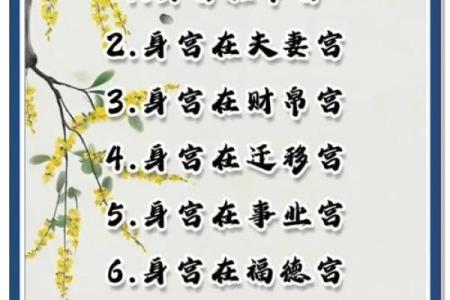 2.身宫在夫妻宫
3.身宫在财帛宫
4.身宫在迁移宫
5.身宫在事业宫
6.身宫在福德宫